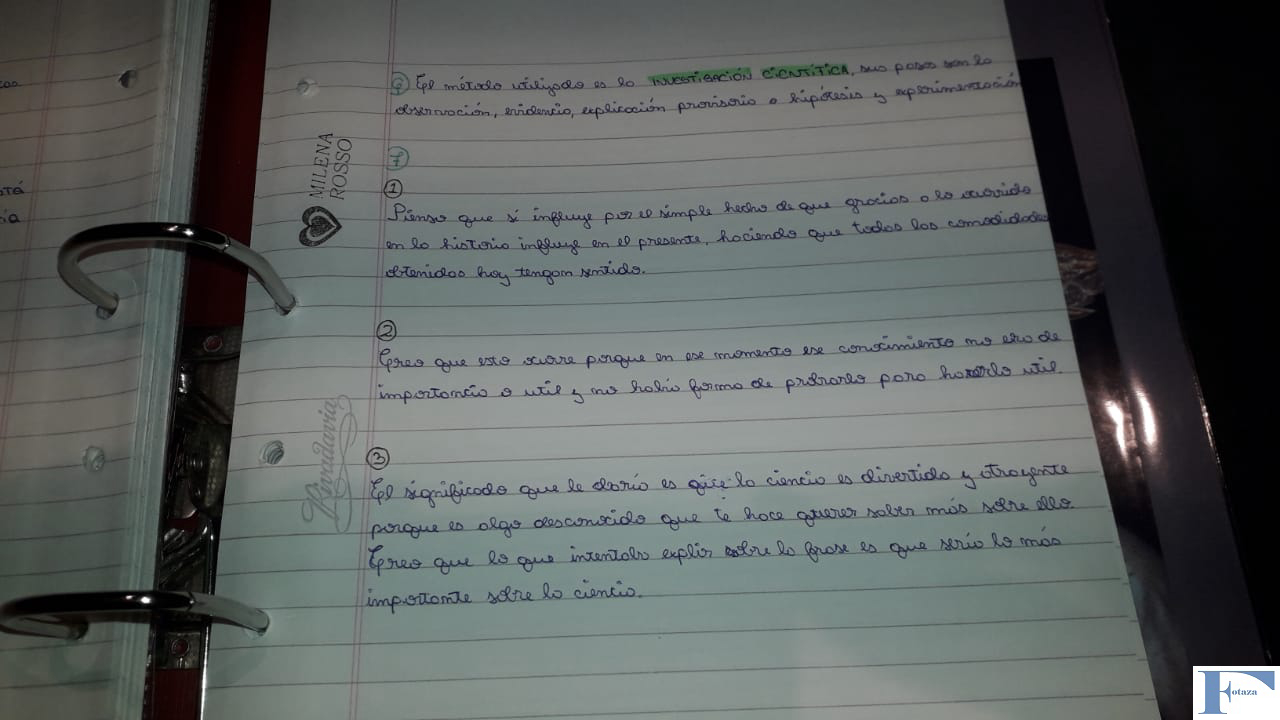 cas
6 El método utilizado es la INVESTIGACIÓN CIENTÍFICA, sus pasos son la
observación, evidencia, explicación provisoria o hipótesis y experimentación
7
MILENA
ROSSO
1
Pienso que si influye por el simple hecho de que gracias a lo ocurrido
en la historia influye en el presente, haciendo que todas las comodidades
obtenidas hoy tengan sentido.
2
Creo que esto ocurre porque en ese momento ese conocimiento no era de
importancia o util y no había forma de probarlo para hacerlo util.
Rivadavia
3
El significado que le daría es que la ciencia es divertida y atrayente
porque es algo desconocido que te hace querer saber más sobre ello.
Creo que lo que intentals explir sobre la frase es que sería lo más
importante sobre la ciencia.
Fotaza